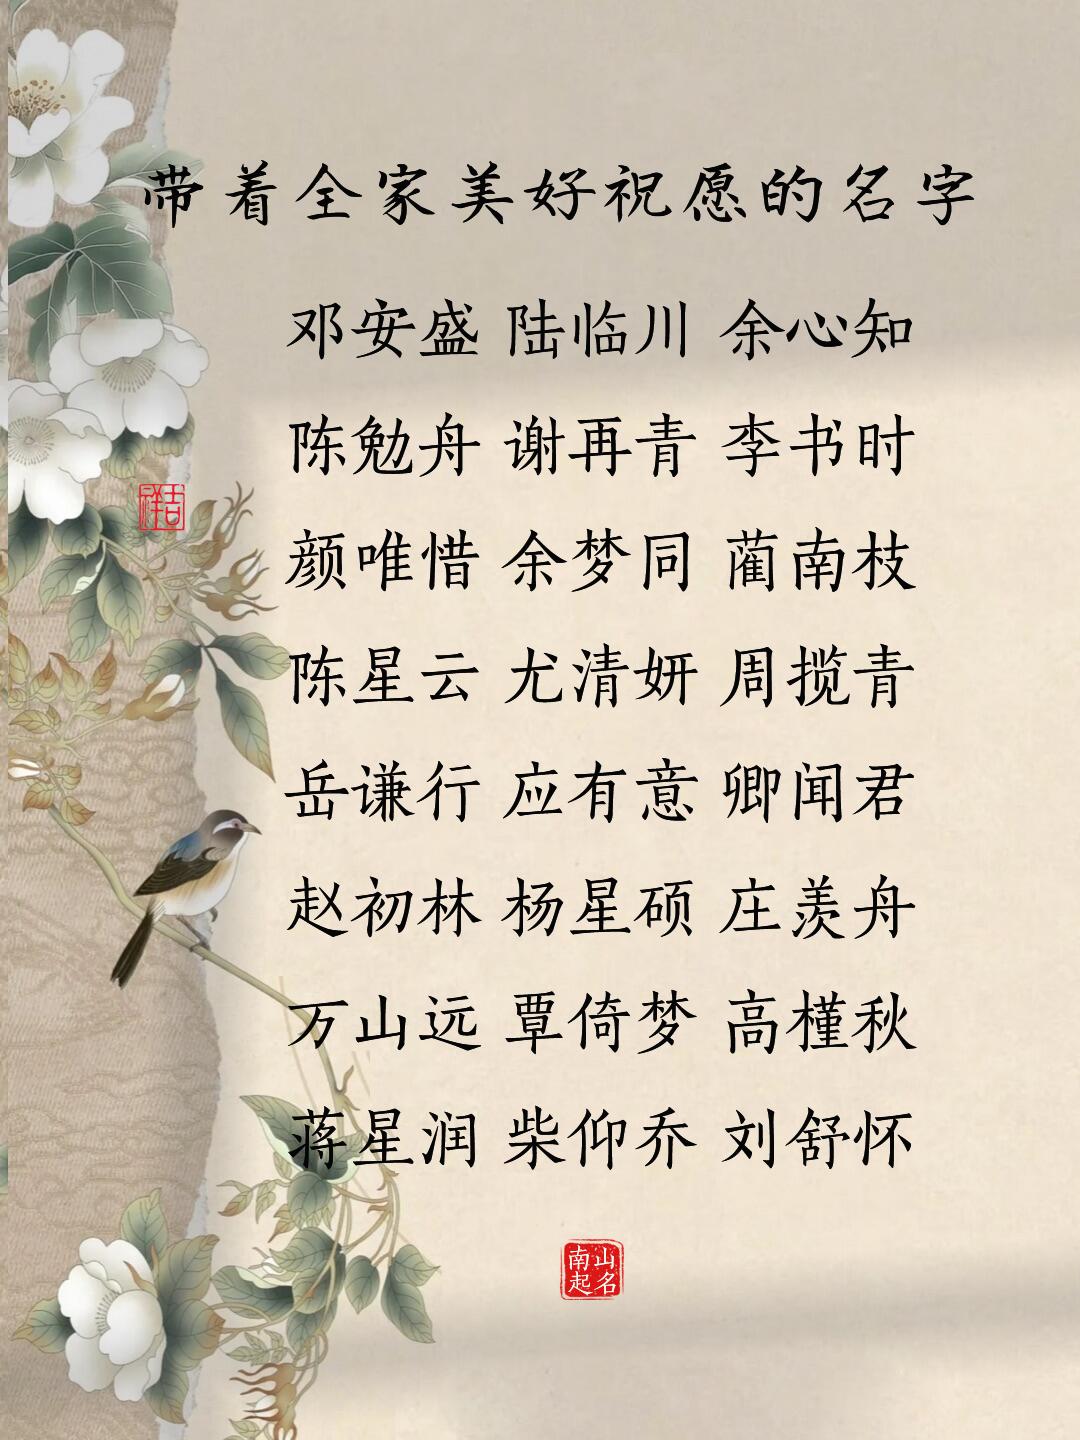 带着全家美好祝愿的名字
邓安盛 陆临川 余心知
陈勉舟 谢再青 李书时
吉祥
颜唯惜 余梦同 蔺南枝
陈星云 尤清妍 周揽青
岳谦行 应有意 卿闻君
赵初林 杨星硕 庄羡舟
万山远 覃倚梦 高槿秋
蒋星润 柴仰乔 刘舒怀
南山
起名